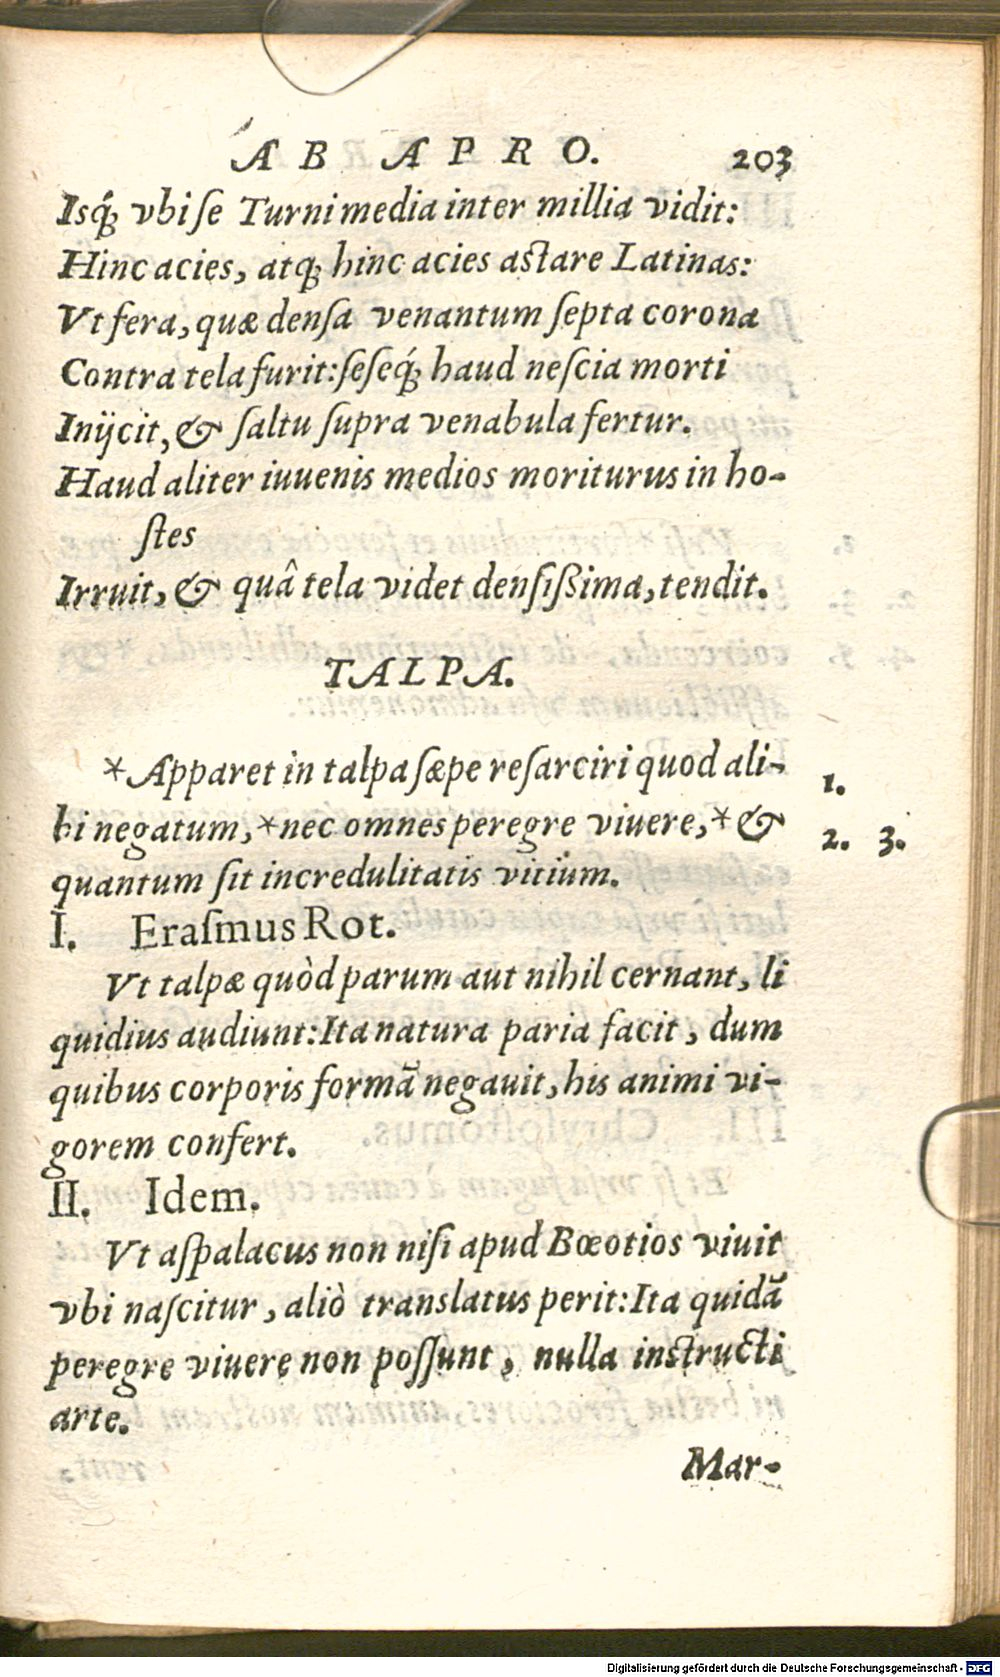 AB APRO. 203
Isq́; vbi se Turni media inter millia vidit:
Hinc acies, atq; hinc acies astare Latinas:
Vt fera, quæ densa venantum septa corona
Contra tela furit: seseq́; haud nescia morti
Inijcit, & saltu supra venabula fertur.
Haud aliter iuuenis medios moriturus in ho-
stes
Irruit, & quâ tela videt densißima, tendit.
TALPA.
*Apparet in talpa sæpe resarciri quod ali- 1.
bi negatum, *nec omnes peregre viuere, *& 2. 3.
quantum sit incredulitatis vitium.
I. Erasmus Rot.
Vt talpæ quòd parum aut nihil cernant, li
quidius audiunt: Ita natura paria facit, dum
quibus corporis formã negauit, his animi vi-
gorem confert.
II. Idem.
Vt aspalacus non nisi apud Bœotios viuit
vbi nascitur, aliò translatus perit: Ita quidã
peregre viuere non possunt, nulla instructi
arte.
Mar-
Digitalisierung gefördert durch die Deutsche Forschungsgemeinschaft - DFG